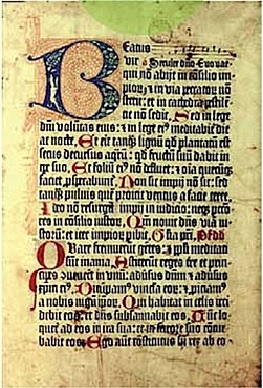 Beatus
vir Seruite dño Euouae
qui nõ abijt in cõsilio im
pioꝝ ⁊ in via pctõꝝ nõ
stetit: et in cathedra pestilẽ
tie nõ sedit, Sed in lege
dñi volũtas eius: et in lege ei⁹ meditabit̃ die
ac nocte, Et erit tanq̃ lignũ qd̃ plantatũ est
secus decursus aq̃rũ: qd̃ fructũ suũ dabit in
tp̃e suo, Et foliũ ei⁹ nõ defluet: ⁊ oĩa quecũq̃
faciet p̃sperabunt̃, Nõ sic impij nõ sic: sed
tanq̃ puluis quẽ proicit ventus a facie terre,
Ideo nõ resurgẽt impij in iudicio: neq̃ pctõ
res in cõsilio iustoꝝ, Qm̃ nouit dñs viã iu
stoꝝ: et iter impioꝝ pibit, Gl̃a pr̃i,
Quare fremuerũt gẽtes: ⁊ pp̃li meditati
sunt inania, Astiterũt reges tr̃e et prin
cipes cõuenerũt in vnũ: adũsus dñm ⁊ adũsus
xp̃m ei⁹, Dirũpam⁹ vincla eoꝝ: ⁊ piciam⁹
a nobis iugũ ipõꝝ, Qui habitat in celis irri
debit eos: et dñs subsannabit eos, Tũc lo
quet̃ ad eos in ira sua: et in furore suo cõtur
babit eos, Ego aũt cõstitutus sũ rex ab eo